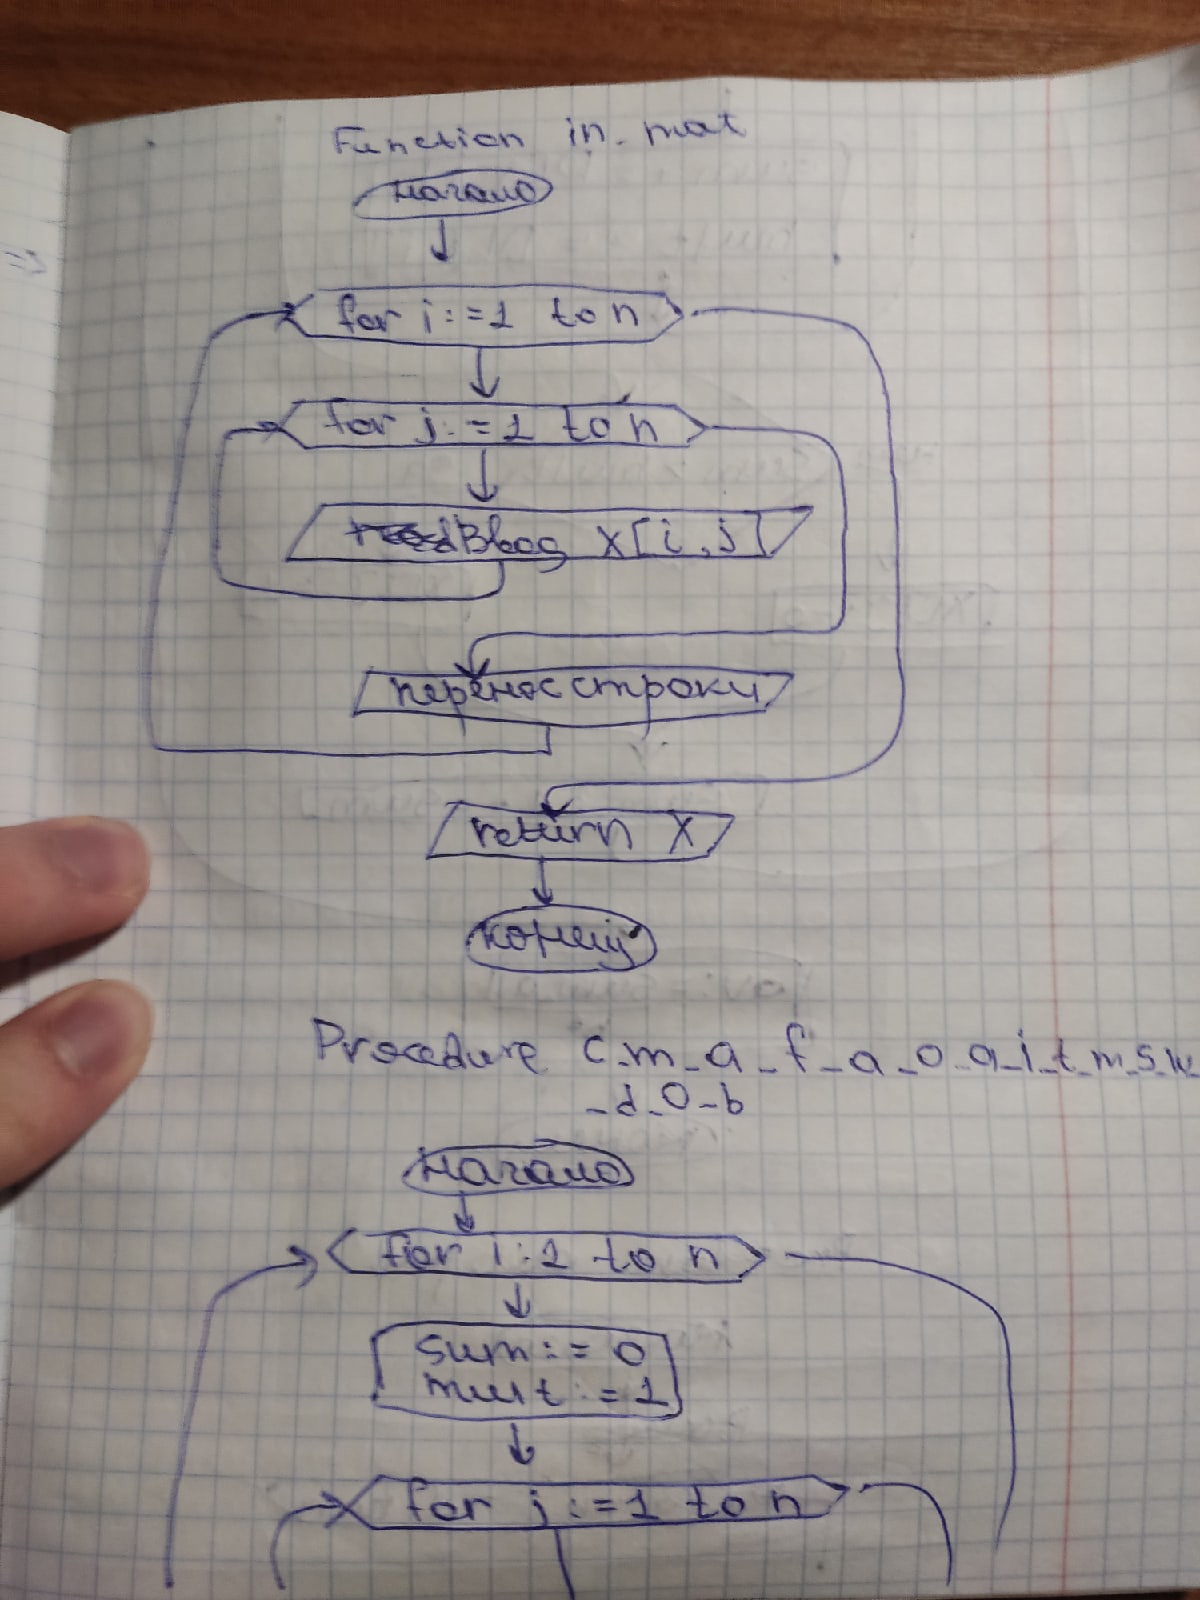 Function in. mat
начало
for i:=1 to n
for j:=1 to n
Ввод X[i,j]
перенос строки
return X
конец
Procedure c_m_a_f_a_o_a_i_t_m_s_w
_d_o_b
начало
for i:1 to n
sum:=0
mult:=1
for j:=1 to n